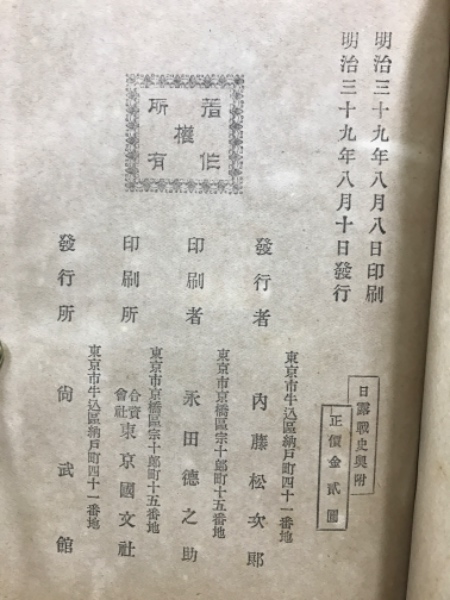 明治三十九年八月八日印刷
明治三十九年八月十日發行
日露戰史與附
正價金貳圓
著作權所有
東京市牛込區納戸町四十一番地
發行者 內藤松次郎
東京市京橋區宗十郎町十五番地
印刷者 永田德之助
東京市京橋區宗十郎町十五番地
印刷所 合資會社 東京國文社
東京市牛込區納戸町四十一番地
發行所 尙武館